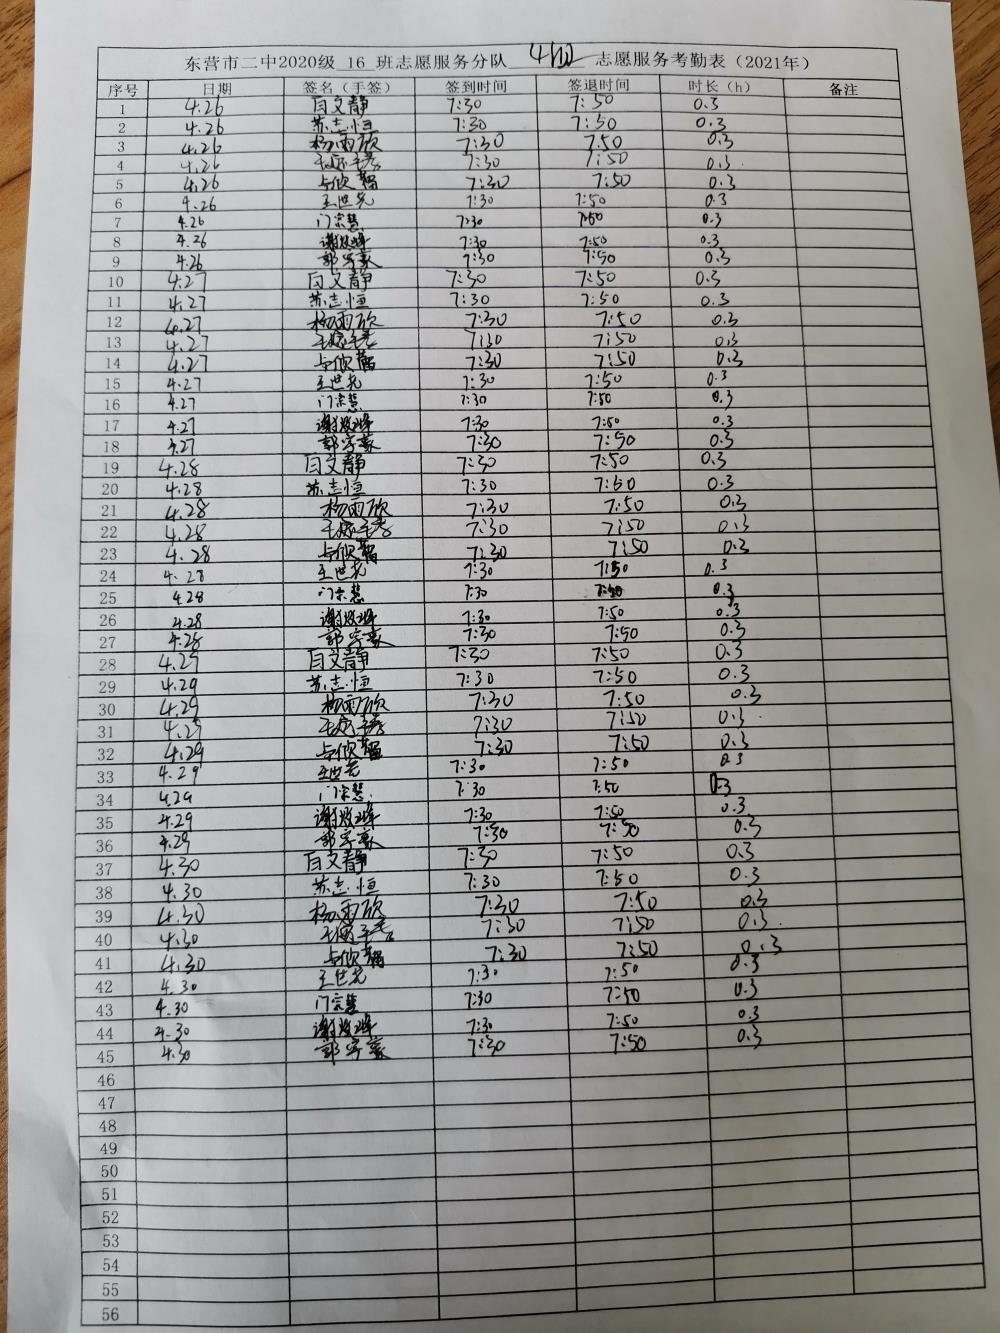 东营市二中2020级 16 班志愿服务分队 4组 志愿服务考勤表（2021年）
序号 日期 签名（手签） 签到时间 签退时间 时长（h） 备注
1 4.26 白文静 7:30 7:50 0.3
2 4.26 苏志恒 7:30 7:50 0.3
3 4.26 杨雨欣 7:30 7:50 0.3
4 4.26 7:30 7:50 0.3
5 4.26 7:30 7:50 0.3
6 4.26 王世光 7:30 7:50 0.3
7 4.26 门宗慧 7:30 7:50 0.3
8 4.26 7:30 7:50 0.3
9 4.26 郭宇豪 7:30 7:50 0.3
10 4.27 白文静 7:30 7:50 0.3
11 4.27 苏志恒 7:30 7:50 0.3
12 4.27 杨雨欣 7:30 7:50 0.3
13 4.27 7:30 7:50 0.3
14 4.27 7:30 7:50 0.3
15 4.27 王世光 7:30 7:50 0.3
16 4.27 门宗慧 7:30 7:50 0.3
17 4.27 7:30 7:50 0.3
18 4.27 郭宇豪 7:30 7:50 0.3
19 4.28 白文静 7:30 7:50 0.3
20 4.28 苏志恒 7:30 7:50 0.3
21 4.28 杨雨欣 7:30 7:50 0.3
22 4.28 7:30 7:50 0.3
23 4.28 7:30 7:50 0.3
24 4.28 王世光 7:30 7:50 0.3
25 4.28 门宗慧 7:30 7:50 0.3
26 4.28 7:30 7:50 0.3
27 4.28 郭宇豪 7:30 7:50 0.3
28 4.29 白文静 7:30 7:50 0.3
29 4.29 苏志恒 7:30 7:50 0.3
30 4.29 杨雨欣 7:30 7:50 0.3
31 4.29 7:30 7:50 0.3
32 4.29 7:30 7:50 0.3
33 4.29 王世光 7:30 7:50 0.3
34 4.29 门宗慧 7:30 7:50 0.3
35 4.29 7:30 7:50 0.3
36 4.29 郭宇豪 7:30 7:50 0.3
37 4.30 白文静 7:30 7:50 0.3
38 4.30 苏志恒 7:30 7:50 0.3
39 4.30 杨雨欣 7:30 7:50 0.3
40 4.30 7:30 7:50 0.3
41 4.30 7:30 7:50 0.3
42 4.30 王世光 7:30 7:50 0.3
43 4.30 门宗慧 7:30 7:50 0.3
44 4.30 7:30 7:50 0.3
45 4.30 郭宇豪 7:30 7:50 0.3
46
47
48
49
50
51
52
53
54
55
56